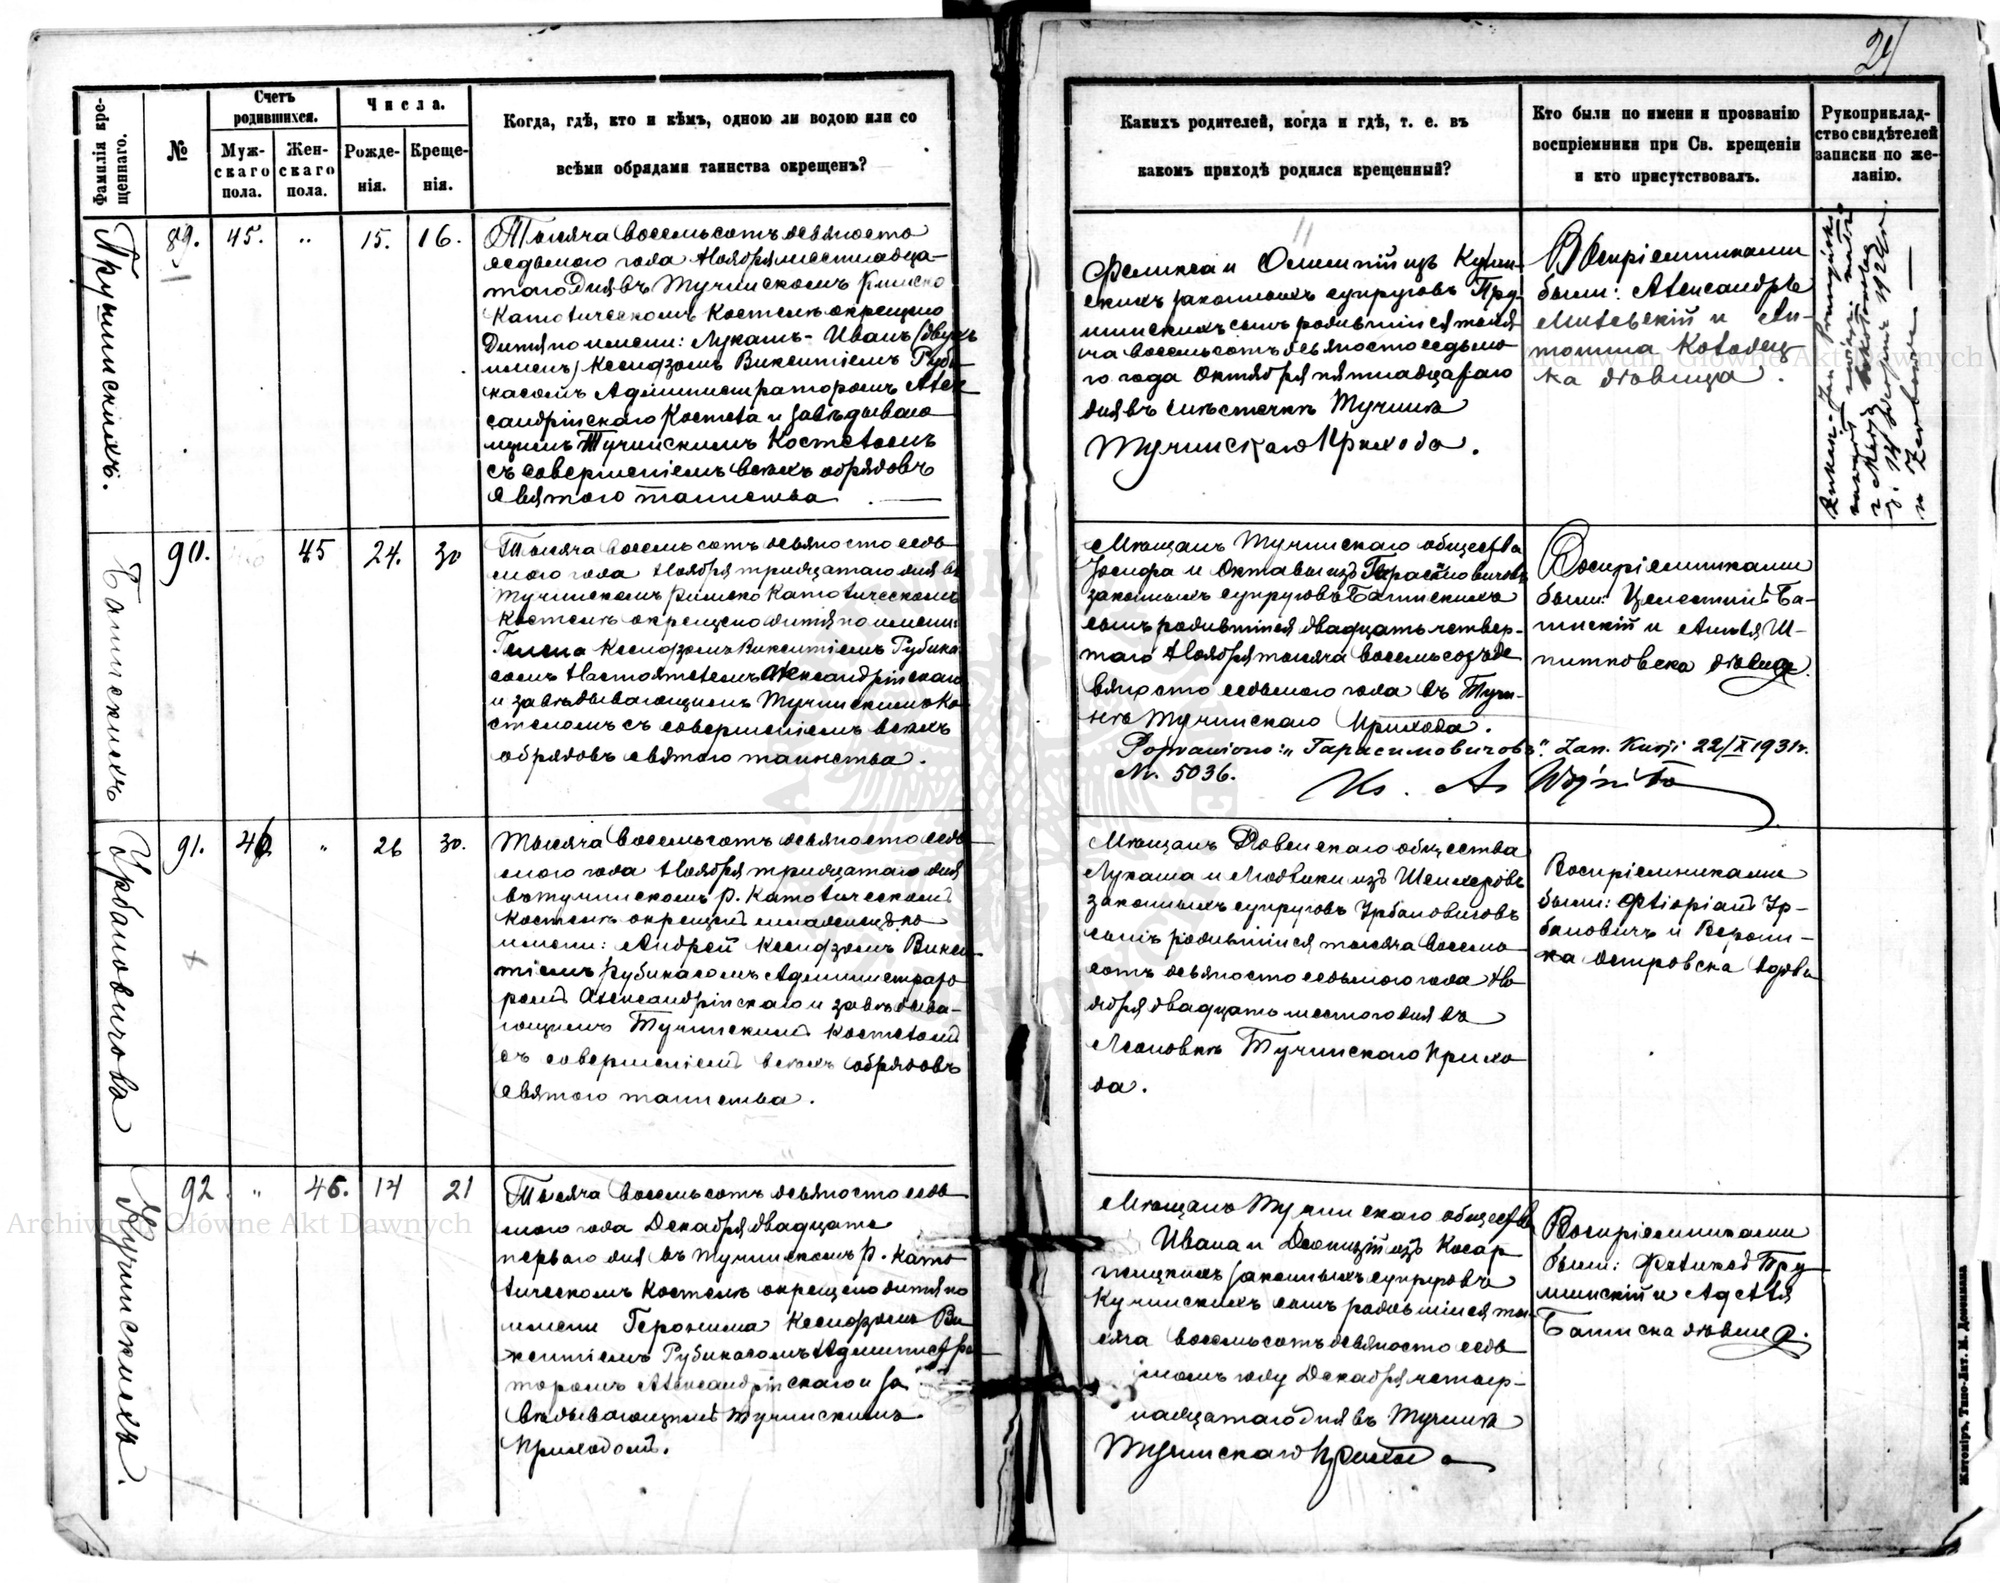 24
Фамилія кре-
щеннаго.
№
Счетъ
родившихся.
Муж-
скаго
пола.
Жен-
скаго
пола.
Числа.
Рожде-
нія.
Креще-
нія.
Когда, гдѣ, кто и кѣмъ, одною ли водою или со
всѣми обрядами таинства окрещенъ?
Какихъ родителей, когда и гдѣ, т. е. въ
какомъ приходѣ родился крещенный?
Кто были по имени и прозванію
воспріемники при Св. крещеніи
и кто присутствовалъ.
Рукоприклад-
ство свидѣтелей
записки по же-
ланію.
Прушинскихъ.
89.
45.
"
15.
16.
Тысяча восемьсотъ девяносто
седьмого года Ноября шестнадца-
таго Дня въ Тучинскомъ Римско
Католическомъ Костелѣ окрещено
Дитя по имени: Лукашъ-Иванъ (двухъ
именъ) Ксендзомъ Викентіемъ Руби-
касомъ Администраторомъ Алек
сандрійскаго Костела и завѣдываю
щимъ Тучинскимъ Костеломъ
съ совершеніемъ всѣхъ обрядовъ
святого таинства
Феликса и Олимпіи изъ
законныхъ супруговъ Пру-
шинскихъ сынъ родившійся тыся
ча восемьсотъ девяносто седьмо
го года Октября пятнадцатаго
дня въ мѣстечкѣ Тучинѣ
Тучинскаго Прихода.
Воспріемниками
были: Александръ
и Ан-
тонина Колодец
ка дѣвица.
Банискихъ
90.
45
24.
30
Тысяча восемьсотъ девяносто седь
мого года Ноября тридцатаго дня въ
Тучинскомъ Римско Католическомъ
Костелѣ окрещено дитя по имени:
Гелена Ксендзомъ Викентіемъ Рубика
сомъ Настоятелемъ Александрійскаго
и завѣдывающимъ Тучинскимъ Ко
стеломъ съ совершеніемъ всѣхъ
обрядовъ святого таинства.
Мѣщанъ Тучинскаго общества
Іосифа и Октавіи изъ
законныхъ супруговъ Банискихъ
сынъ родившійся двадцать четвер-
таго Ноября тысяча восемьсотъ де
вяносто седьмого года въ Тучи-
нѣ Тучинскаго Прихода.
Poprawiono: „Гарасимовичовъ". Zan. Kurji 22/X 1931 r.
Nr. 5036.
Ks. A.
Воспріемниками
были: Целестинъ Ба-
нискій и Амелія
дѣвица.
Урбановичова
91.
46
"
26
30.
Тысяча восемьсотъ девяносто седь
мого года Ноября тридцатаго дня
въ Тучинскомъ Р. Католическомъ
Костелѣ окрещенъ младенецъ по
имени: Андрей Ксендзомъ Викен-
тіемъ Рубикасомъ Администрато
ромъ Александрійскаго и завѣдыва-
ющимъ Тучинскимъ Костеломъ
съ совершеніемъ всѣхъ обрядовъ
святого таинства.
Мѣщанъ Ровенскаго общества
Лукаша и Людвики изъ
законныхъ супруговъ Урбановичовъ
сынъ родившійся тысяча восемь
сотъ девяносто седьмого года Но
ября двадцать шестого дня въ
Леоновкѣ Тучинскаго Прихо
да.
Воспріемниками
были: Флоріанъ Ур-
бановичъ и Верони-
ка Островска вдова
Кучинскихъ.
92
"
46.
14
21
Тысяча восемьсотъ девяносто седь
мого года Декабря двадцать
перваго дня въ Тучинскомъ Р. Като
лическомъ Костелѣ окрещено дитя по
имени Геронима Ксендзомъ Ви
кентіемъ Рубикасомъ Администра
торомъ Александрійскаго и за
вѣдывающимъ Тучинскимъ
Приходомъ.
Мѣщанъ Тучинскаго общества
Ивана и Леонидіи изъ
законныхъ супруговъ
Кучинскихъ сынъ родившійся ты
сяча восемьсотъ девяносто седь
момъ году Декабря четыр-
надцатаго дня въ Тучинѣ
Тучинскаго Прихода
Воспріемниками
были: Феликсъ Пру
шинскій и Аделя
Баниска дѣвица.
Житоміръ, Типо-Лит. М. Дененмана
Archiwum Główne Akt Dawnych
Archiwum Główne Akt Dawnych